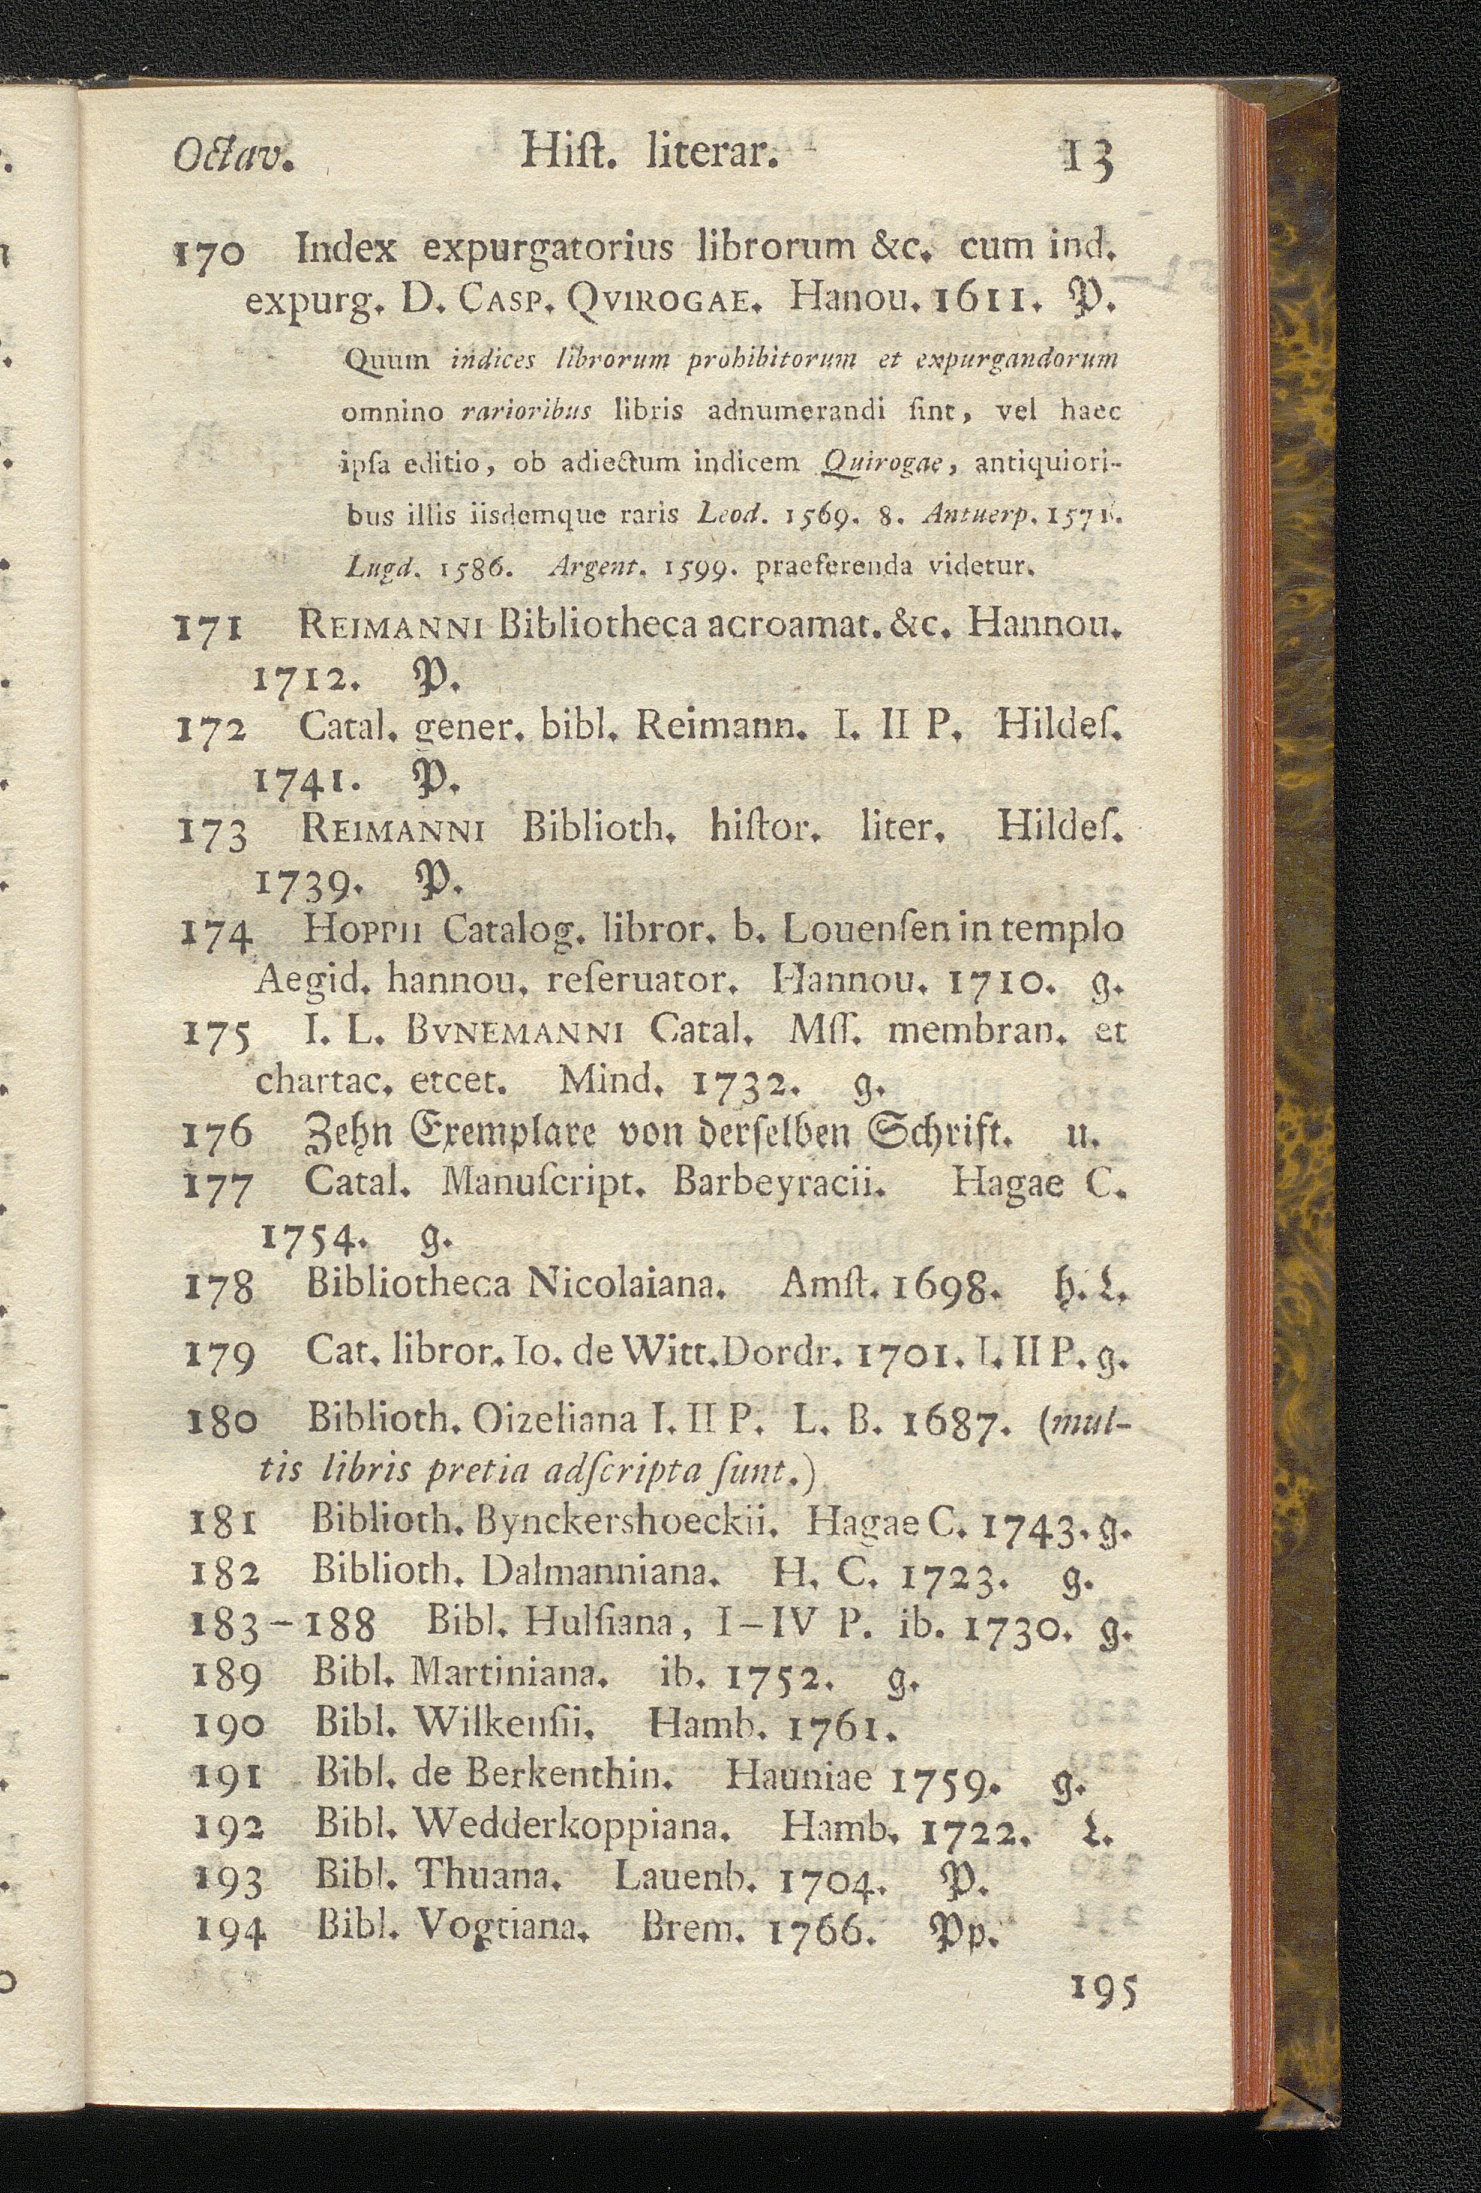 Octav. Hiſt. literar. 13
170 Index expurgatorius librorum &c. cum ind.
expurg. D. CASP. QVIROGAE. Hanou. 1611. P.
Quum indices librorum prohibitorum et expurgandorum
omnino rarioribus libris adnumerandi ſint, vel haec
ipſa editio, ob adiectum indicem Quirogae, antiquiori-
bus illis iisdemque raris Leod. 1569. 8. Antuerp. 1571.
Lugd. 1586. Argent. 1599. praeferenda videtur.
171 REIMANNI Bibliotheca acroamat. &c. Hannou.
1712. P.
172 Catal. gener. bibl. Reimann. I. II P. Hildeſ.
1741. P.
173 REIMANNI Biblioth. hiſtor. liter. Hildeſ.
1739. P.
174 HOPPII Catalog. libror. b. Louenſen in templo
Aegid. hannou. reſeruator. Hannou. 1710. g.
175 I. L. BVNEMANNI Catal. Mſſ. membran. et
chartac. etcet. Mind. 1732. g.
176 Zehn Exemplare von derſelben Schrift. u.
177 Catal. Manuſcript. Barbeyracii. Hagae C.
1754. g.
178 Bibliotheca Nicolaiana. Amſt. 1698. h. L.
179 Cat. libror. Io. de Witt. Dordr. 1701. I. II P. g.
180 Biblioth. Oizeliana I. II P. L. B. 1687. (mul-
tis libris pretia adſcripta ſunt.)
181 Biblioth. Bynckershoeckii. Hagae C. 1743. g.
182 Biblioth. Dalmanniana. H. C. 1723. g.
183-188 Bibl. Hulſiana, I-IV P. ib. 1730. g.
189 Bibl. Martiniana. ib. 1752. g.
190 Bibl. Wilkenſii. Hamb. 1761.
191 Bibl. de Berkenthin. Hauniae 1759. g.
192 Bibl. Wedderkoppiana. Hamb. 1722. L.
193 Bibl. Thuana. Lauenb. 1704. P.
194 Bibl. Vogtiana. Brem. 1766. Pp.
195